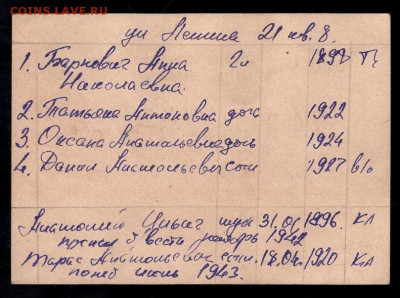 COINS.SU
ул Ленина 21 кв. 8.
1. Барнович Анна гл 1898
Николаевна
2. Татьяна Антоновна дочь 1922
3. Оксана Анатольевна дочь 1924
4. Данил Анатольевич сын 1927 в/о
Анатолий Ильич муж 31.01 1896. КЛ
1942
Тарас Анатольевич сын. 18.04.1920 КЛ
погиб июль 1943.